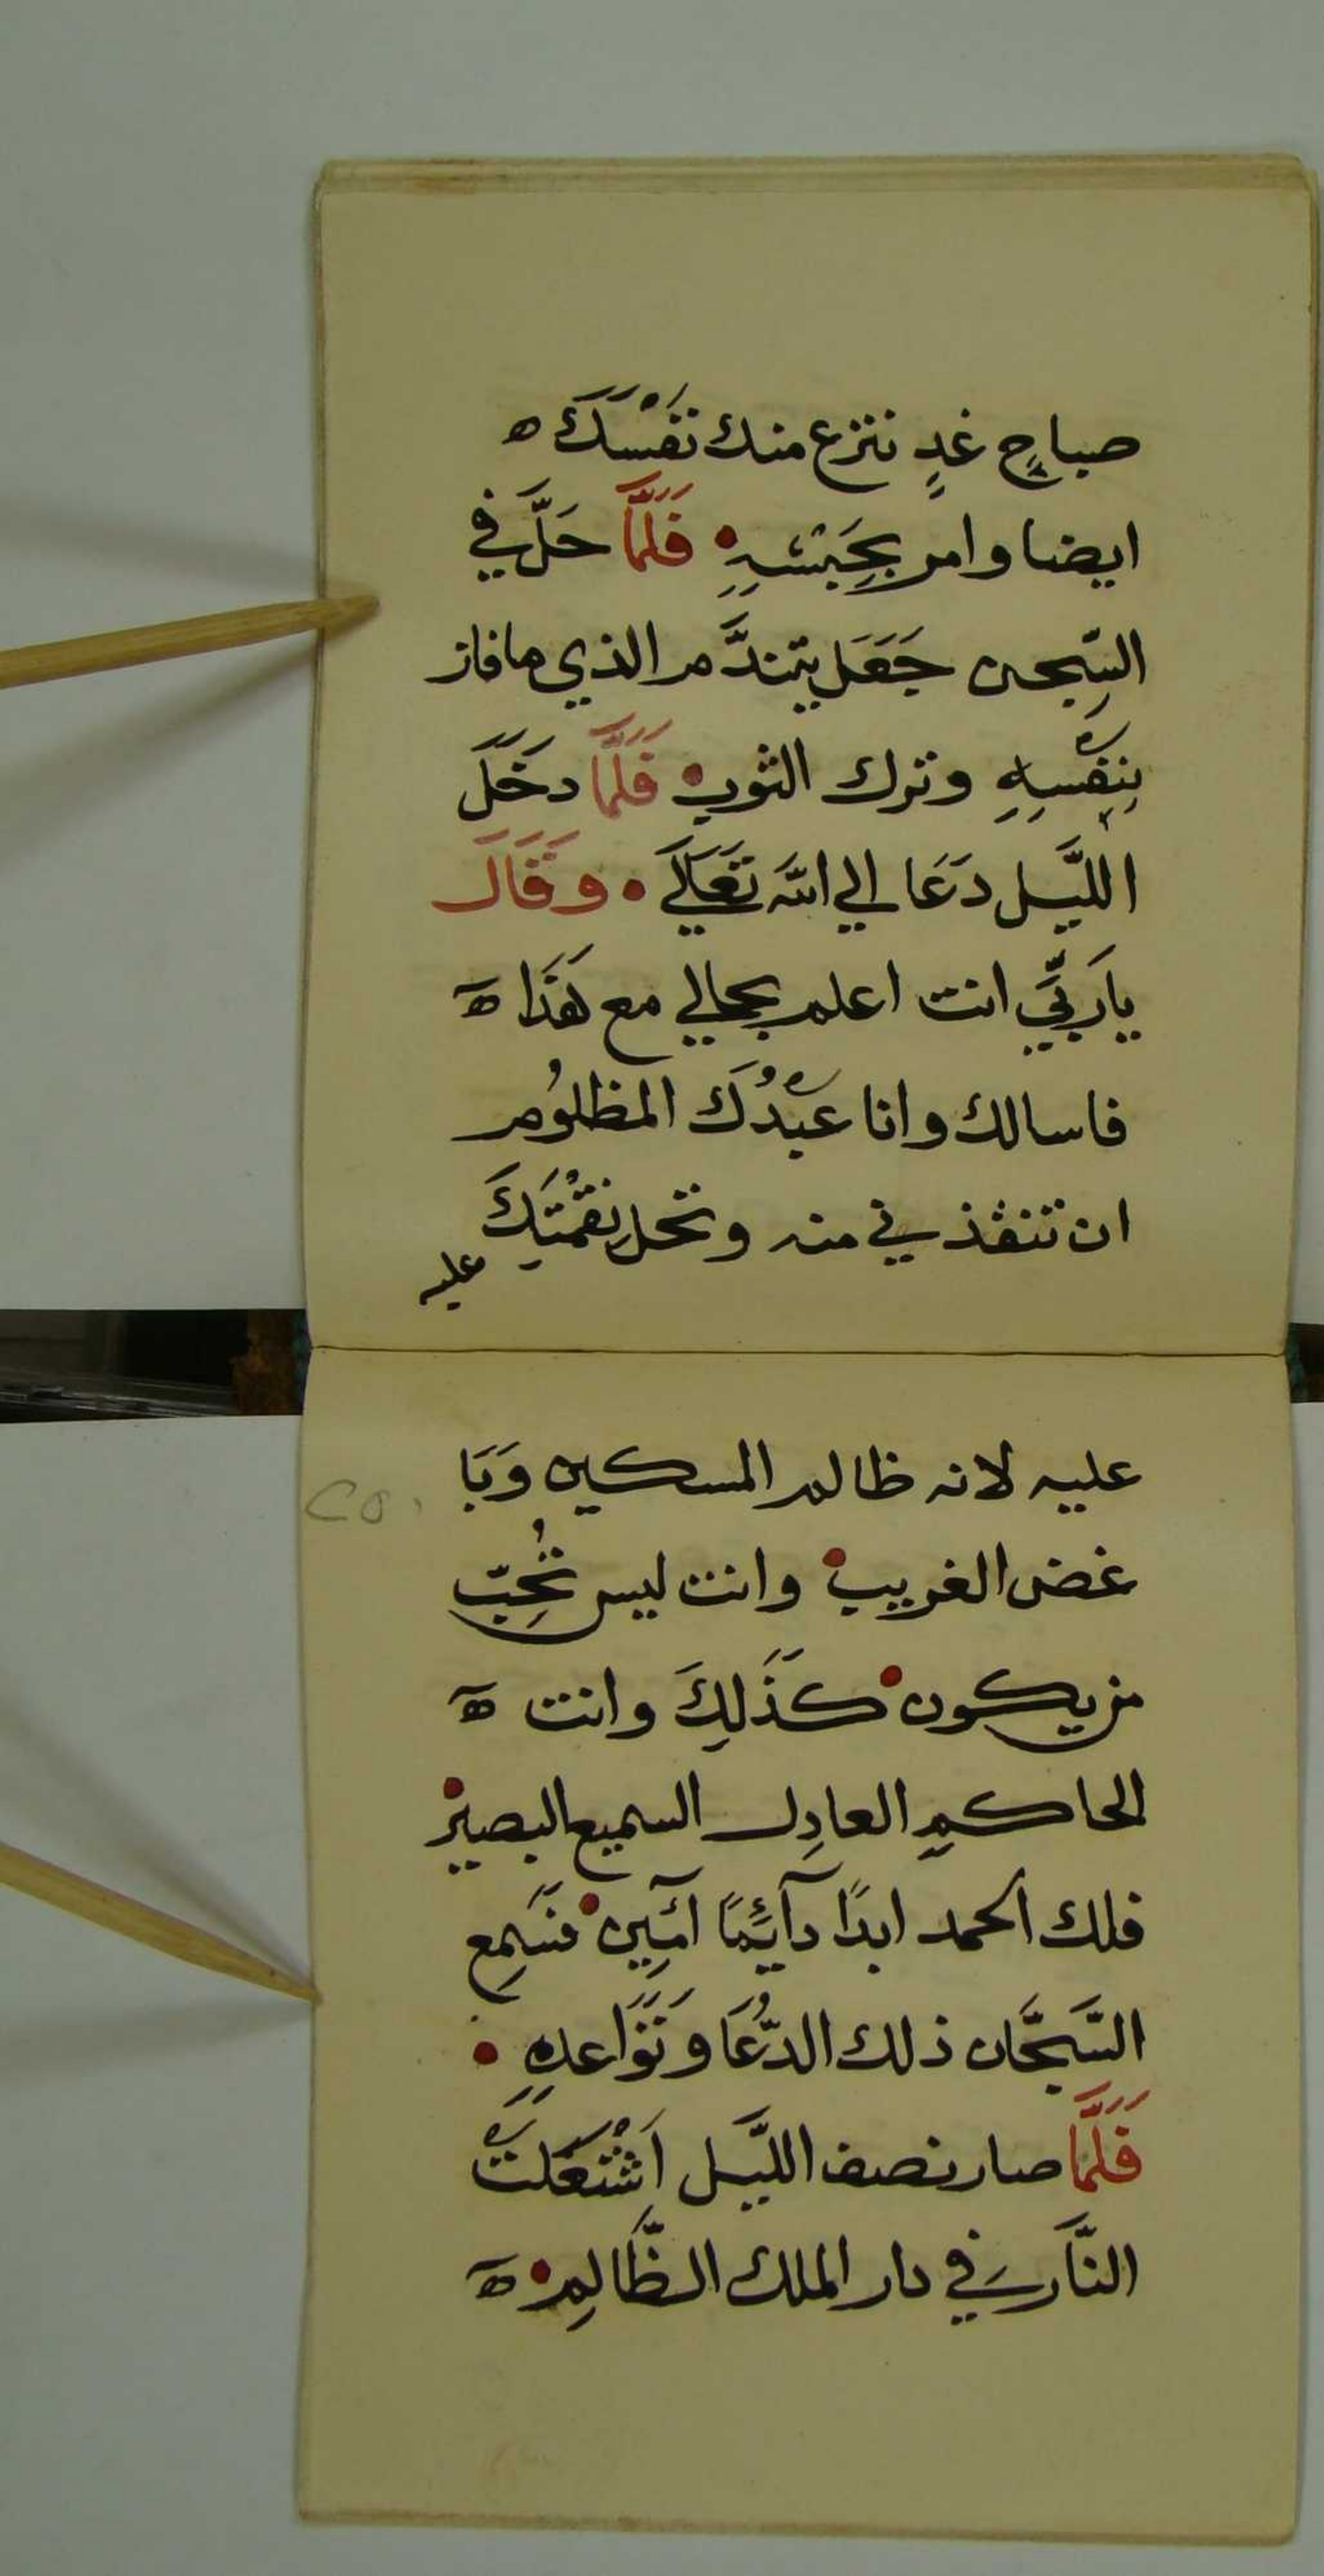 صباحِ غدٍ ننزع منك نَفْسَكَ ه
ايضا وامر بحِبَسْهِ فَلَمَّا حَلَّ في
السِّجن جَعَل يتندَّم الذي ما فاز
بنِفْسِهِ وترك الثوب فَلَمَّا دخَلَ
الليَّل دَعَا الي الله تَعَالَي وَقَالَ
يارَبّيِ انت اعلم بحالي مع هَذَا ه
فاسالك وانا عَبْدُكَ المظلُوم
ان تنقذني منه وتحل نِقْمتِكَ
عليه
عليه لانه ظالم المسكين وَبَا
غض الغريب وانت ليس تُحِبّ
من يكون كَذَلِكَ وانت ه
الحاكمِ العادِل السميع البصير
فلك الحمد ابدًا دآئِمًا آمِين فسَمِع
السَّجَّان ذلك الدُّعَا وتَوَاعدهِ
فَلَمَّا صار نصف الليَّل اَشْتعَلتْ
النَّار في دار الملك الظَّالِم ه